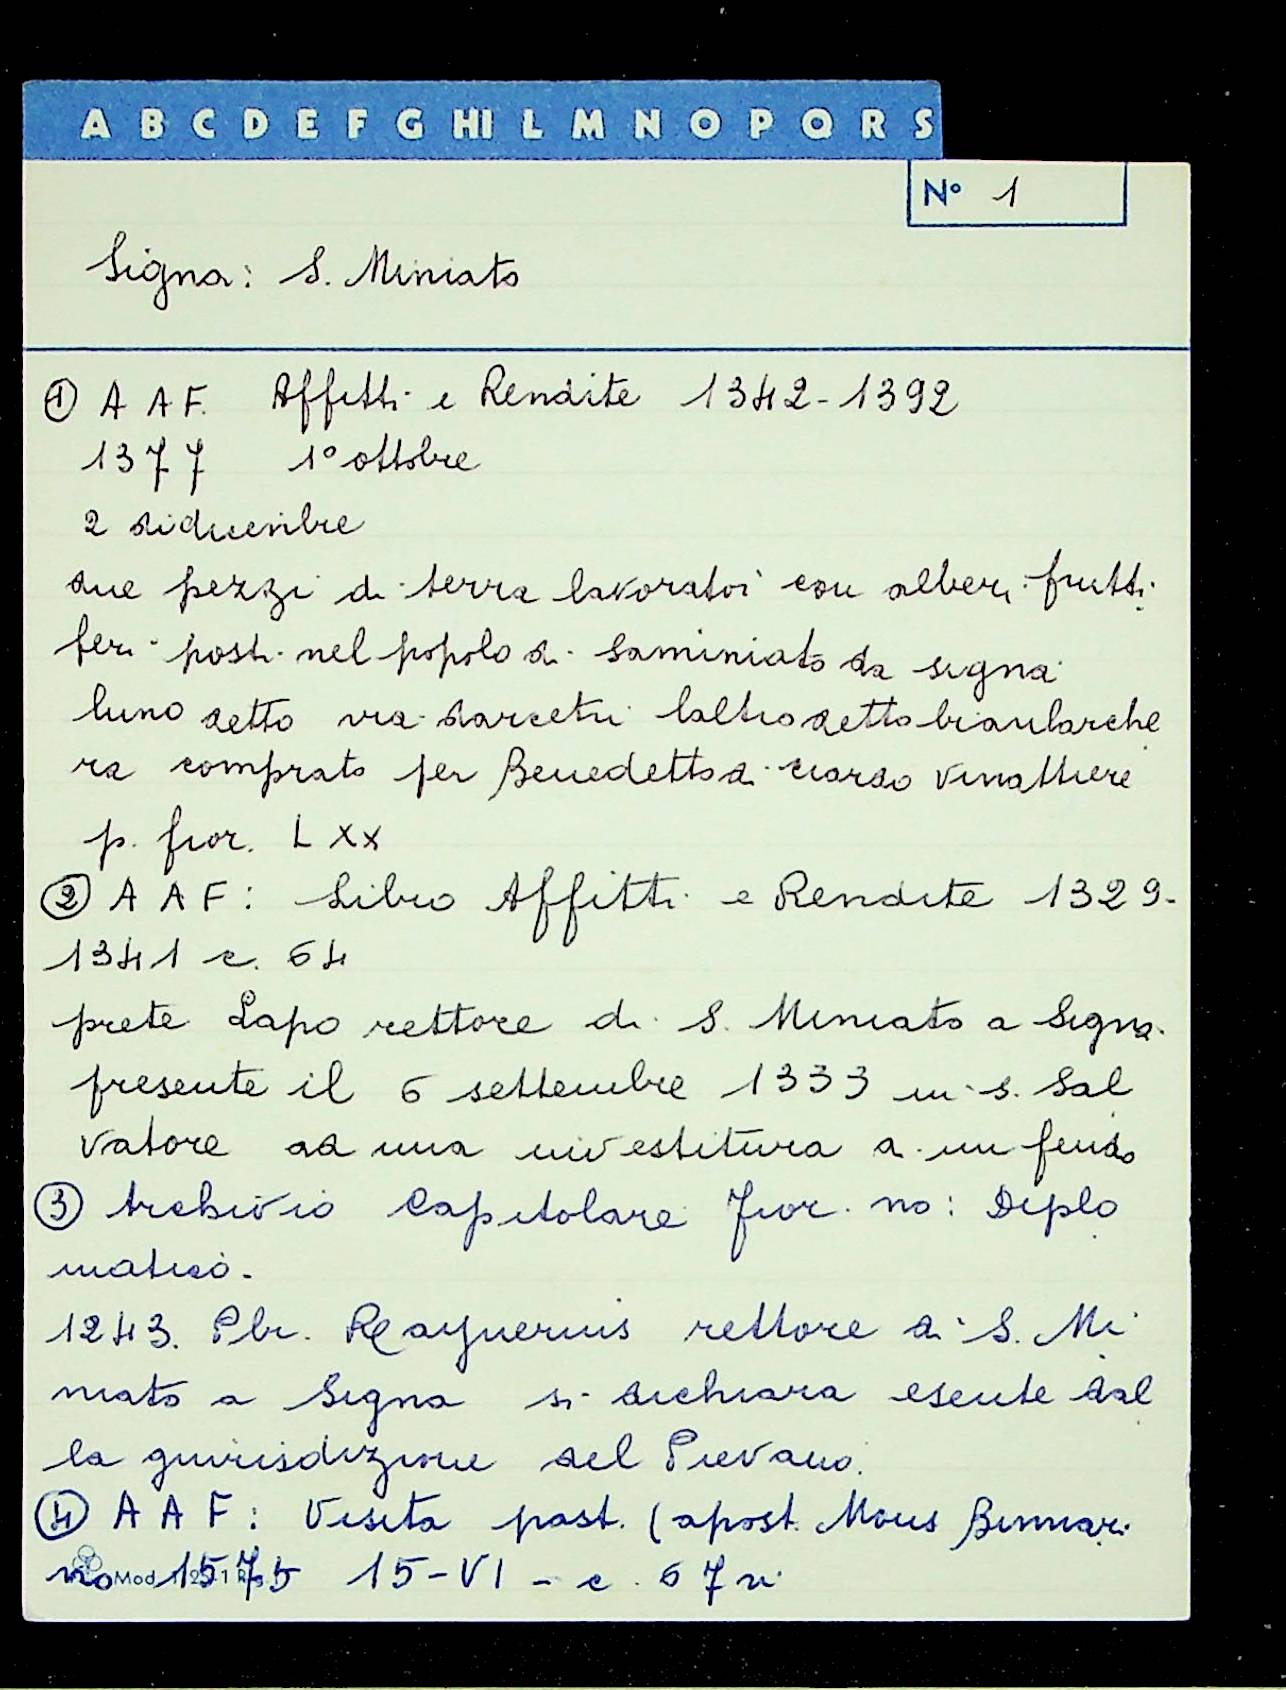 A B C D E F G HI L M N O P Q R S
N° 1
Signa: S. Miniato
① A A F. Affitti e Rendite 1342-1392
1377 1° ottobre
2 didicembre
due pezzi di terra lavoratoi con alberi frutti
feri posti nel popolo di Saminiato da Signa
luno detto via darcetri laltro detto
ra comprato per Benedetto di ciardo vinattiere
p. fior. L x x
② A A F: Libro Affitti e Rendite 1329-
1341 c. 64
prete Lapo rettore di S. Miniato a Signa
presente il 6 settembre 1333 in S. Sal
vatore ad una investitura di un feudo
③ Archivio Capitolare Fior. no: Diplo
matico.
1243. Pbr. Raynerius rettore di S. Mi
niato a Signa si dichiara esente dal
la giurisdizione del Pievano.
④ A A F: Visita past. (apost. Mons Binnari
no 1575 15-VI - c. 67 v.
Mod.